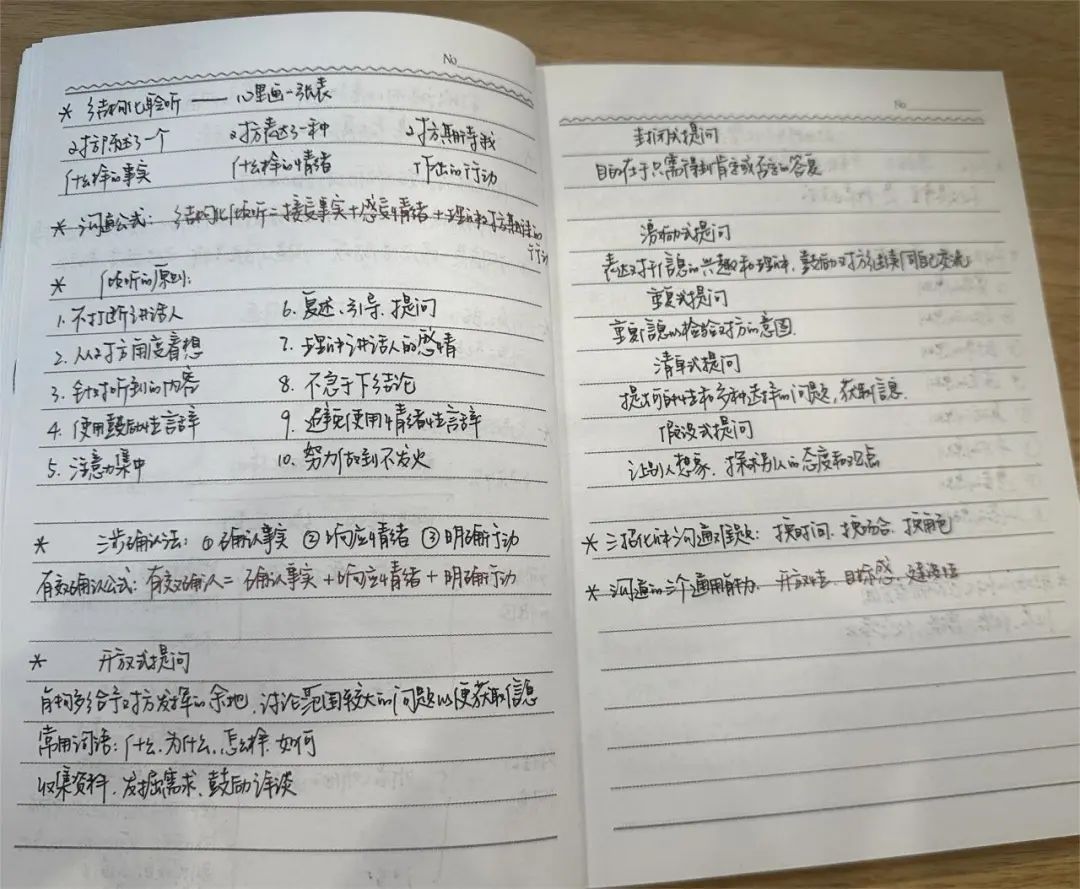 No
* 结构化聆听 —— 心里画一张表
对方陈述了一个 对方表达了一种 对方期待我
什么样的事实 什么样的情绪 作出的行动
* 沟通公式: 结构化倾听=接受事实+感受情绪+理解对方期待的
行动
* 倾听的原则:
1. 不打断讲话人
2. 从对方角度着想
3. 针对听到的内容
4. 使用鼓励性言辞
5. 注意力集中
6. 复述、引导、提问
7. 理解讲话人的感情
8. 不急于下结论
9. 避免使用情绪性言辞
10. 努力做到不发火
* 三步确认法: ①确认事实 ②响应情绪 ③明确行动
有效确认公式: 有效确认= 确认事实+响应情绪+明确行动
* 开放式提问
能够给予对方发挥的余地,讨论范围较大的问题以便获取信息
常用词语: 什么、为什么、怎么样、如何
收集资料、发掘需求、鼓励详谈
No
封闭式提问
目的在于只需得到肯定或否定的答复
激励式提问
表达对于信息的兴趣和理解,鼓励对方继续同自己交流
重复式提问
重复信息以检验对方的意图.
清单式提问
提出可能性和多种选择的问题,获取信息.
假设式提问
让别人想象、探求别人的态度和观点
* 三招化解沟通难题: 换时间、换场合、换角色
* 沟通的三个通用能力. 开放性、目标感、建设性